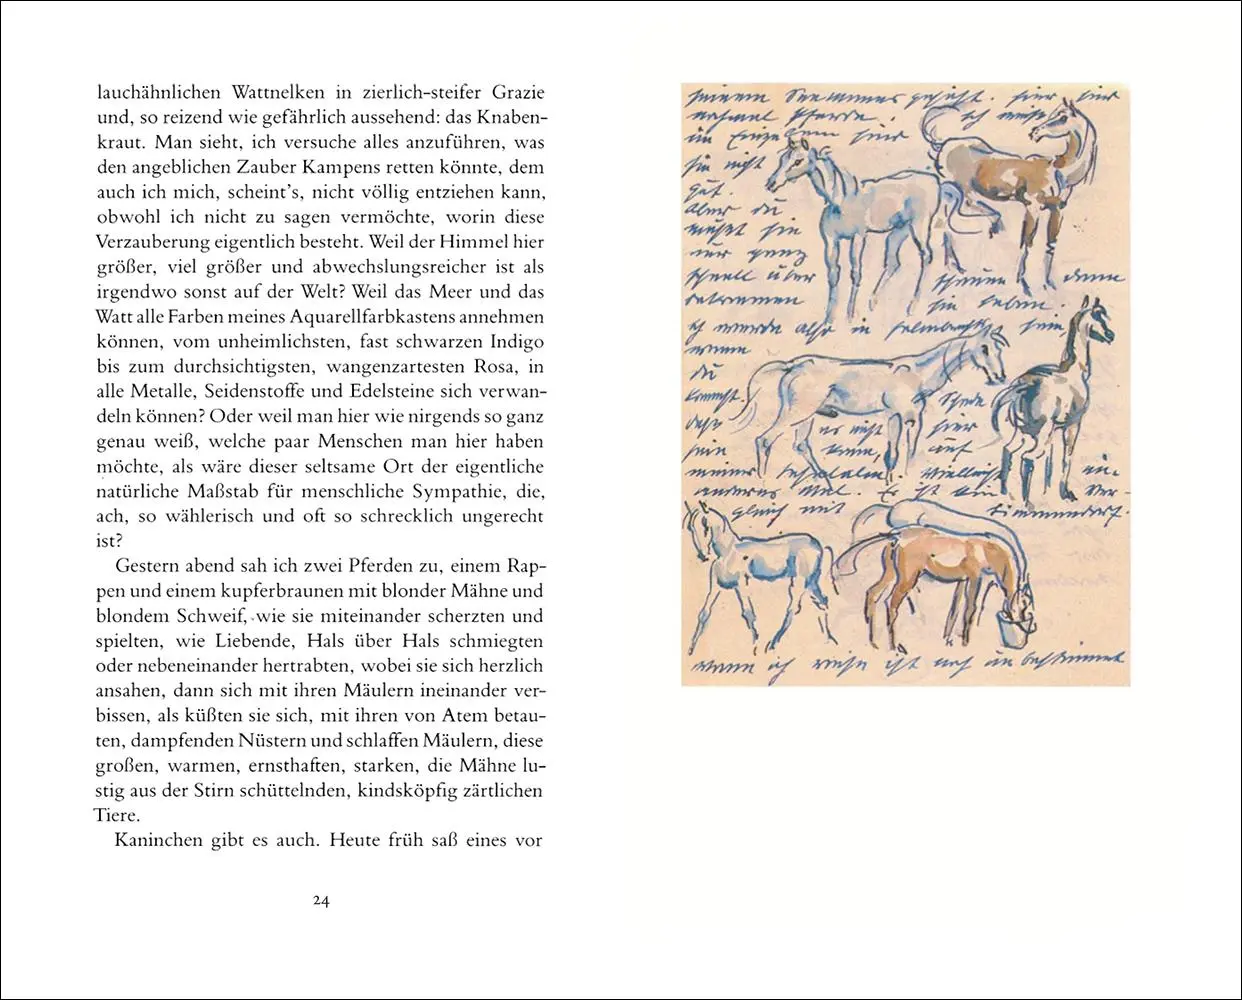 lauchähnlichen Wattnelken in zierlich-steifer Grazie
und, so reizend wie gefährlich aussehend: das Knaben-
kraut. Man sieht, ich versuche alles anzuführen, was
den angeblichen Zauber Kampens retten könnte, dem
auch ich mich, scheint's, nicht völlig entziehen kann,
obwohl ich nicht zu sagen vermöchte, worin diese
Verzauberung eigentlich besteht. Weil der Himmel hier
größer, viel größer und abwechslungsreicher ist als
irgendwo sonst auf der Welt? Weil das Meer und das
Watt alle Farben meines Aquarellfarbkastens annehmen
können, vom unheimlichsten, fast schwarzen Indigo
bis zum durchsichtigsten, wangenzartesten Rosa, in
alle Metalle, Seidenstoffe und Edelsteine sich verwan-
deln können? Oder weil man hier wie nirgends so ganz
genau weiß, welche paar Menschen man hier haben
möchte, als wäre dieser seltsame Ort der eigentliche
natürliche Maßstab für menschliche Sympathie, die,
ach, so wählerisch und oft so schrecklich ungerecht
ist?
Gestern abend sah ich zwei Pferden zu, einem Rap-
pen und einem kupferbraunen mit blonder Mähne und
blondem Schweif, wie sie miteinander scherzten und
spielten, wie Liebende, Hals über Hals schmiegten
oder nebeneinander hertrabten, wobei sie sich herzlich
ansahen, dann sich mit ihren Mäulern ineinander ver-
bissen, als küßten sie sich, mit ihren von Atem betau-
ten, dampfenden Nüstern und schlaffen Mäulern, diese
großen, warmen, ernsthaften, starken, die Mähne lu-
stig aus der Stirn schüttelnden, kindsköpfig zärtlichen
Tiere.
Kaninchen gibt es auch. Heute früh saß eines vor
24
nochmal Pferde. ich
sie nicht
gut.
Aber du
mußt sie
nur ganz
schnell über
dann
sie leben.
ich werde also in sein
wenn
du
kommst.
Schade
daß es nicht hier
sein kann, auf
meiner Vielleicht ein
anderes Mal. Es ist kein Ver-
gleich mit Timmendorf.
wann ich reise ist noch unbestimmt